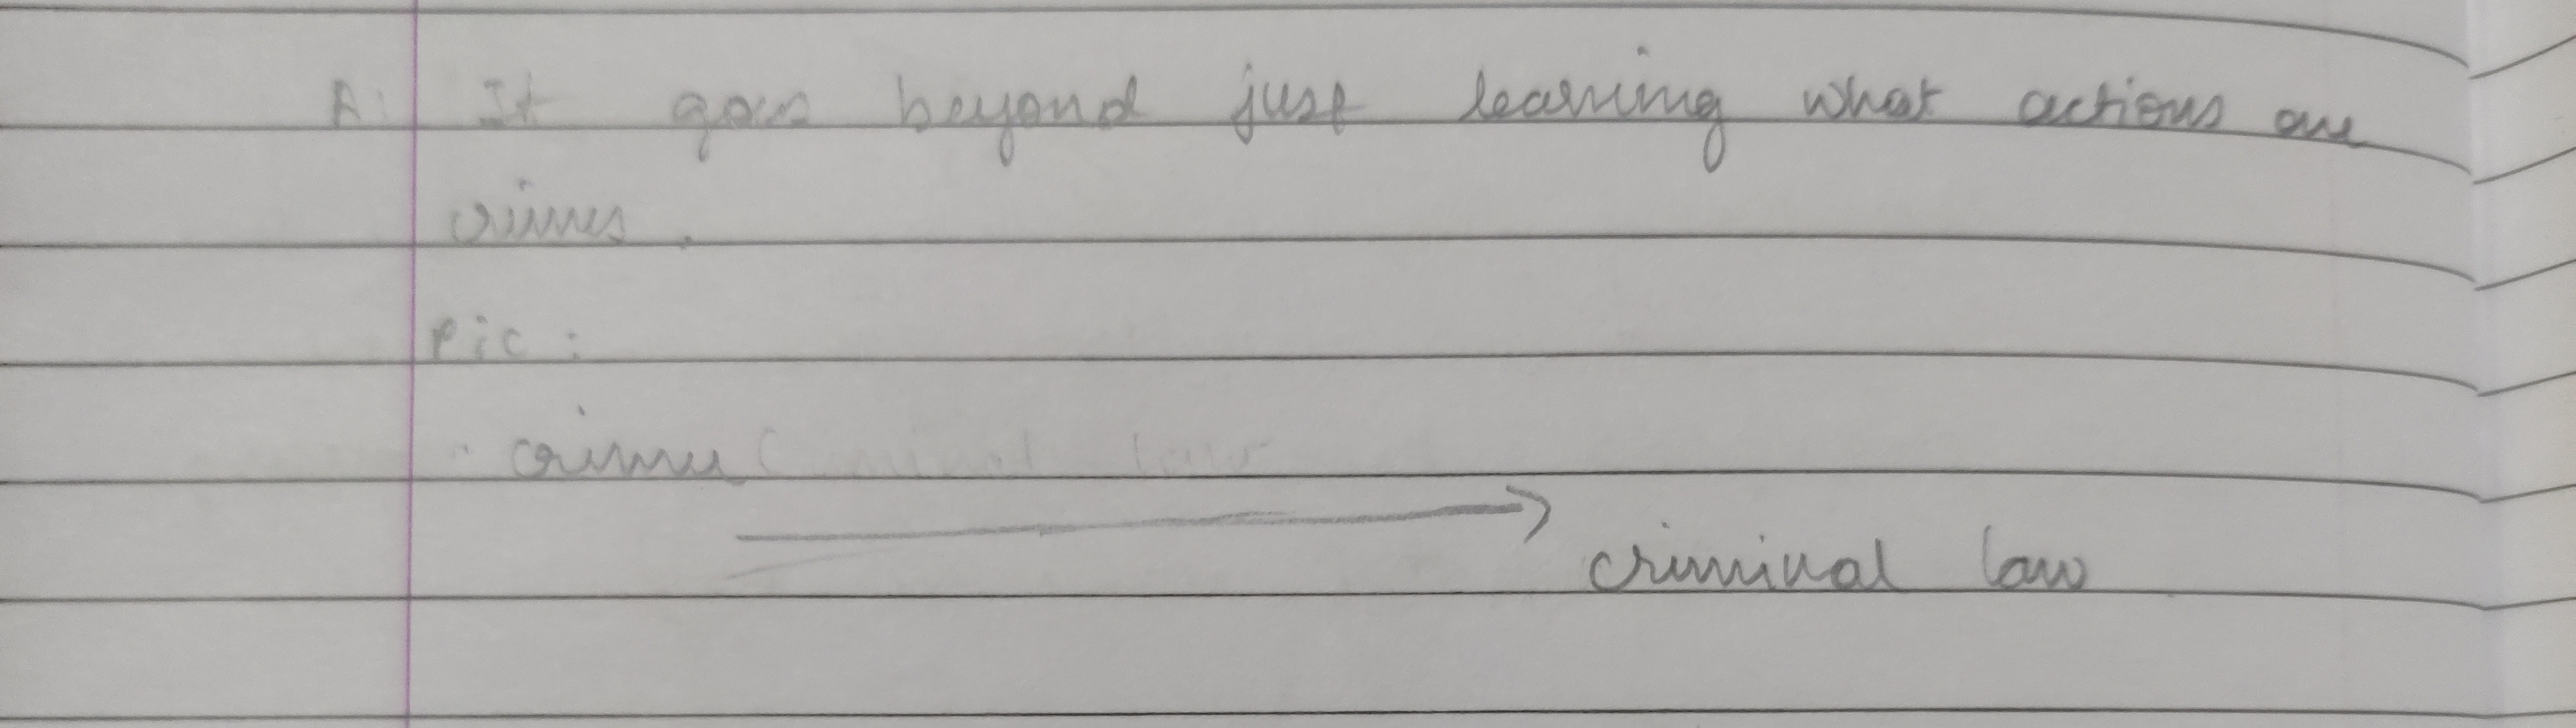 A: It goes beyond just learning what actions are
crimes.
Pic:
crime
criminal law